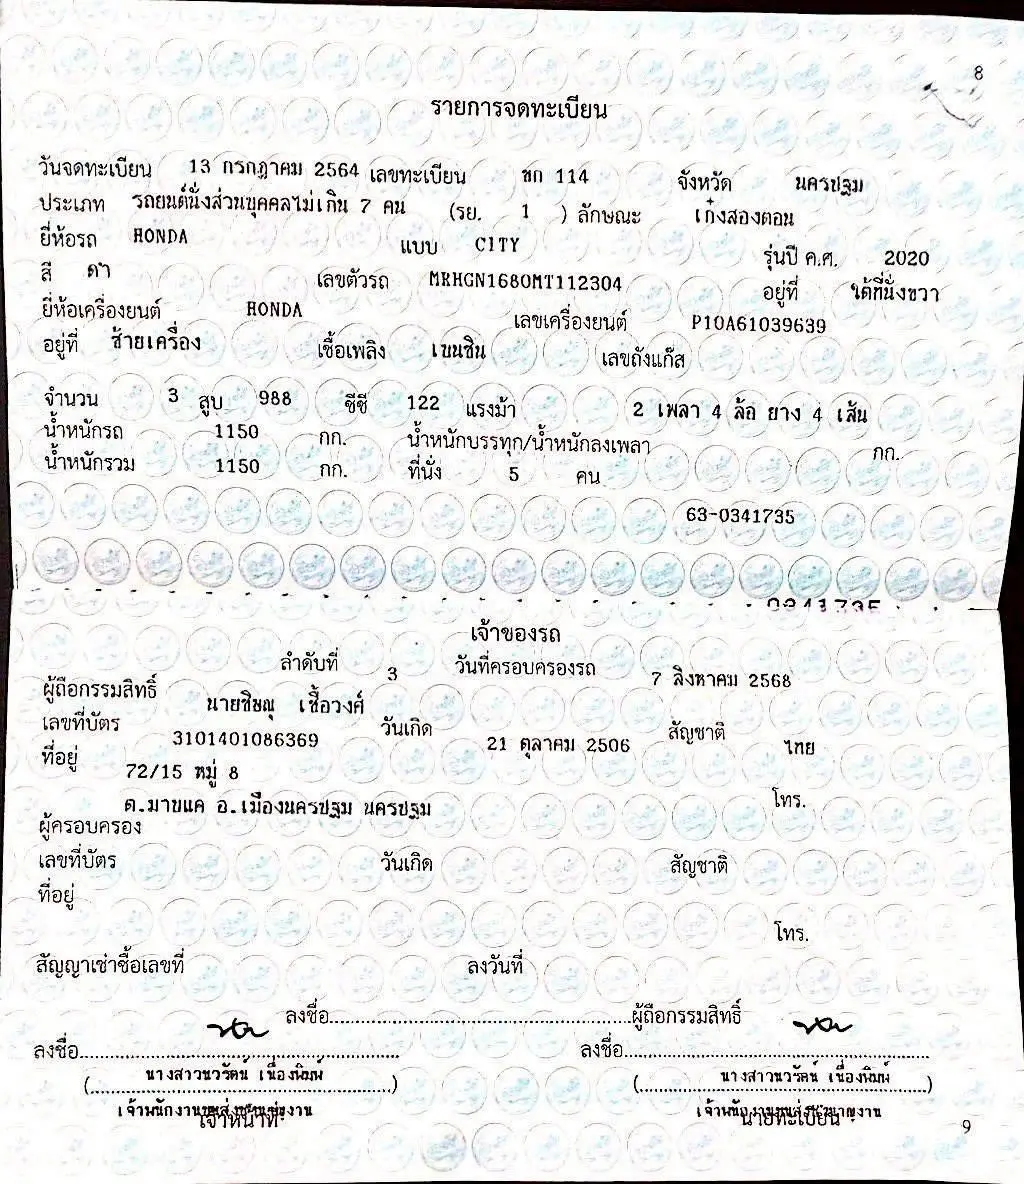 8
รายการจดทะเบียน
วันจดทะเบียน 13 กรกฎาคม 2564 เลขทะเบียน ขก 114 จังหวัด นครปฐม
ประเภท รถยนต์นั่งส่วนบุคคลไม่เกิน 7 คน (รย. 1 ) ลักษณะ เก๋งสองตอน
ยี่ห้อรถ HONDA แบบ CITY รุ่นปี ค.ศ. 2020
สี ดำ เลขตัวรถ MRHGN1680MT112304 อยู่ที่ ใต้ที่นั่งขวา
ยี่ห้อเครื่องยนต์ HONDA เลขเครื่องยนต์ P10A61039639
อยู่ที่ ซ้ายเครื่อง เชื้อเพลิง เบนซิน เลขถังแก๊ส
จำนวน 3 สูบ 988 ซีซี 122 แรงม้า 2 เพลา 4 ล้อ ยาง 4 เส้น
น้ำหนักรถ 1150 กก. น้ำหนักบรรทุก/น้ำหนักลงเพลา กก.
น้ำหนักรวม 1150 กก. ที่นั่ง 5 คน
63-0341735
เจ้าของรถ
ลำดับที่ 3 วันที่ครอบครองรถ 7 สิงหาคม 2568
ผู้ถือกรรมสิทธิ์ นายชิษณุ เชื้อวงศ์
เลขที่บัตร 3101401086369 วันเกิด 21 ตุลาคม 2506 สัญชาติ ไทย
ที่อยู่ 72/15 หมู่ 8
ต.มาบแค อ.เมืองนครปฐม นครปฐม โทร.
ผู้ครอบครอง
เลขที่บัตร วันเกิด สัญชาติ
ที่อยู่
โทร.
สัญญาเช่าซื้อเลขที่ ลงวันที่
ลงชื่อ ผู้ถือกรรมสิทธิ์
ลงชื่อ ลงชื่อ
(นางสาวนวรัตน์ เนื่องพิมพ์) (นางสาวนวรัตน์ เนื่องพิมพ์)
เจ้าพนักงานขนส่งชำนาญงาน เจ้าพนักงานขนส่งชำนาญงาน
เจ้าหน้าที่ นายทะเบียน
9